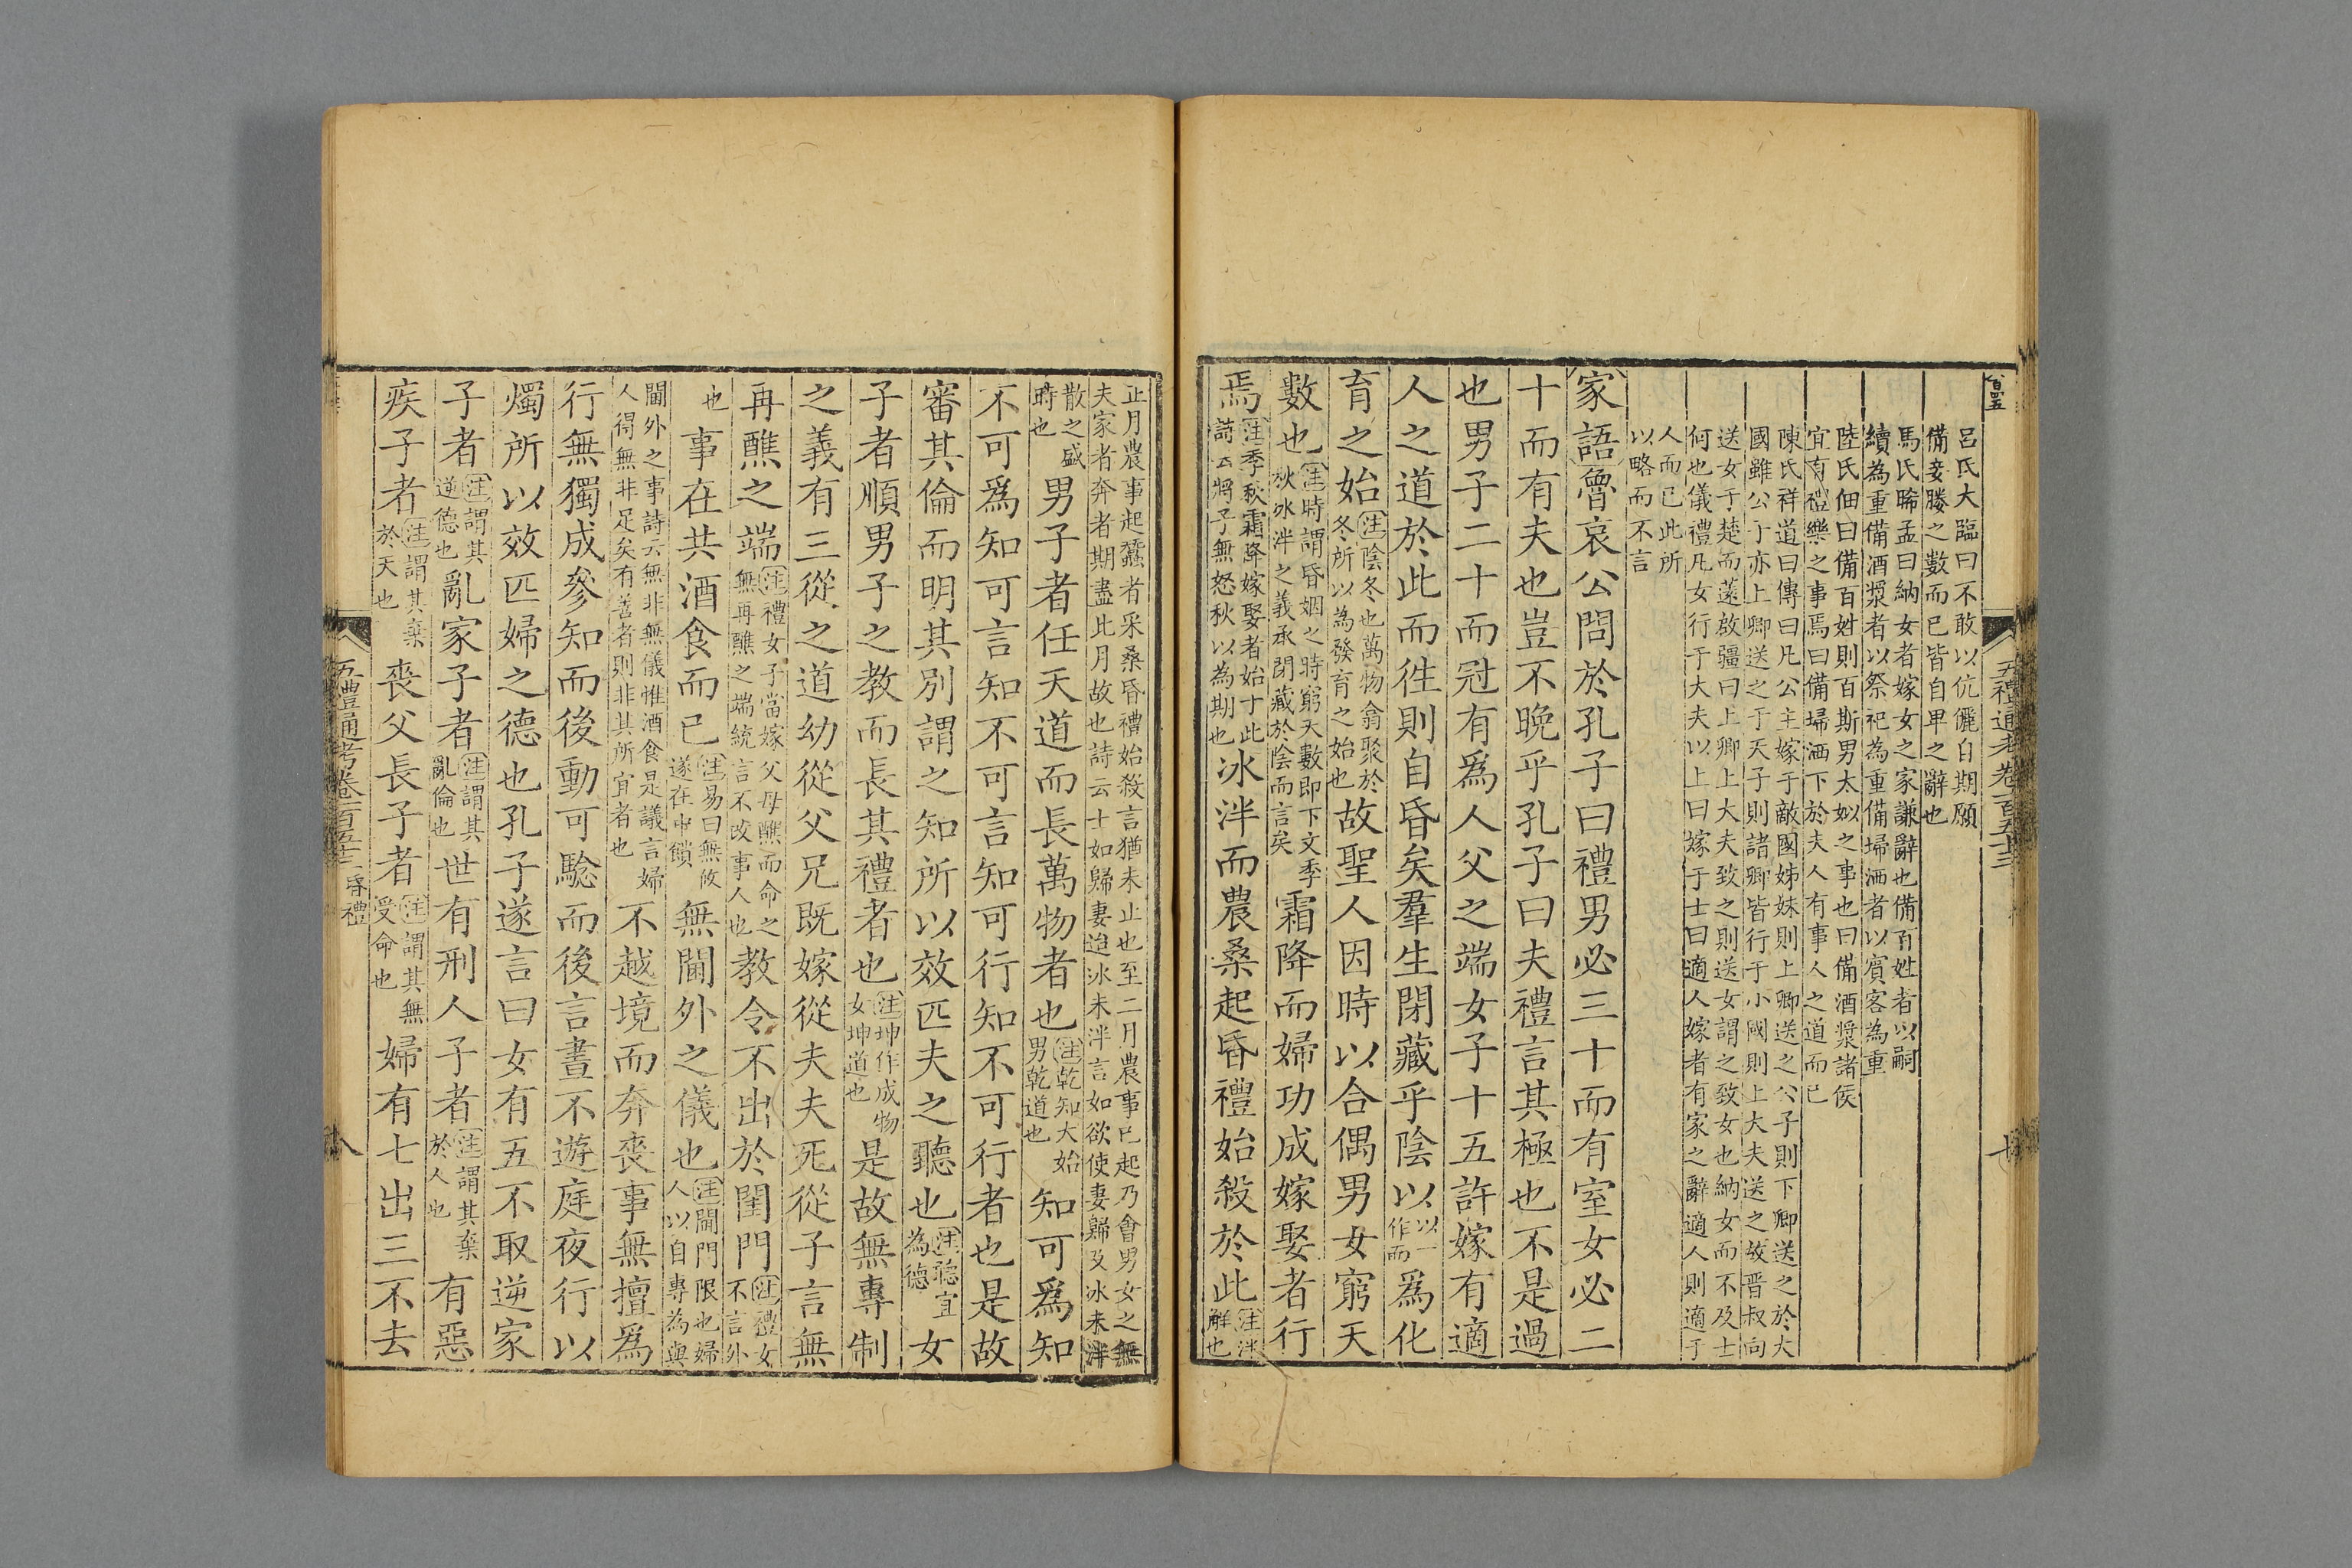 百四五
五禮通考卷一百五十二
呂氏大臨曰不敢以伉儷自期願
備妾媵之數而已皆自卑之辭也
馬氏晞孟曰納女者嫁女之家謙辭也備百姓者以嗣
續為重備酒漿者以祭祀為重備埽洒者以賓客為重
陸氏佃曰備百姓則百斯男太姒之事也曰備酒漿諸侯
宜有禮樂之事焉曰備埽洒下於夫人有事人之道而已
陳氏祥道曰傳曰凡公主嫁于敵國姊妹則上卿送之公子則下卿送之於大
國雖公子亦上卿送之于天子則諸卿皆行于小國則上大夫送之故晋叔向
送女于楚而薳啟疆曰上卿上大夫致之則送女謂之致女也納女而不及士
何也儀禮凡女行于大夫以上曰嫁于士曰適人嫁者有家之辭適人則適于
人而已此所
以略而不言
家語魯哀公問於孔子曰禮男必三十而有室女必二
十而有夫也豈不晚乎孔子曰夫禮言其極也不是過
也男子二十而冠有爲人父之端女子十五許嫁有適
人之道於此而徃則自昏矣羣生閉藏乎陰以以一作而爲化
育之始注陰冬也萬物翕聚於冬所以為發育之始也故聖人因時以合偶男女窮天
數也注時謂昏姻之時窮天數即下文季秋冰泮之義承閉藏於陰而言矣霜降而婦功成嫁娶者行
焉注季秋霜降嫁娶者始于此詩云將子無怒秋以為期也冰泮而農桑起昏禮始殺於此注泮解也
正月農事起蠶者采桑昏禮始殺言猶未止也至二月農事已起乃會男女之無
夫家者奔者期盡此月故也詩云士如歸妻迨冰未泮言如欲使妻歸及冰未泮
散之盛時也男子者任天道而長萬物者也注乾知大始男乾道也知可爲知
不可爲知可言知不可言知可行知不可行者也是故
審其倫而明其別謂之知所以效匹夫之聽也注聽宜為德女
子者順男子之教而長其禮者也注坤作成物女坤道也是故無專制
之義有三從之道幼從父兄既嫁從夫夫死從子言無
再醮之端注禮女子當嫁父母醮而命之無再醮之端統言不改事人也教令不出於閨門注禮女不言外
也事在共酒食而已注易曰無攸遂在中饋無閫外之儀也注閫門限也婦人以自專為與
閫外之事詩云無非無儀惟酒食是議言婦人得無非足矣有善者則非其所宜者也不越境而奔喪事無擅爲
行無獨成參知而後動可驗而後言晝不遊庭夜行以
燭所以效匹婦之德也孔子遂言曰女有五不取逆家
子者注謂其逆德也亂家子者注謂其亂倫也世有刑人子者注謂其棄於人也有惡
疾子者注謂其棄於天也喪父長子者注謂其無受命也婦有七出三不去
五禮通考卷一百五十二 昏禮